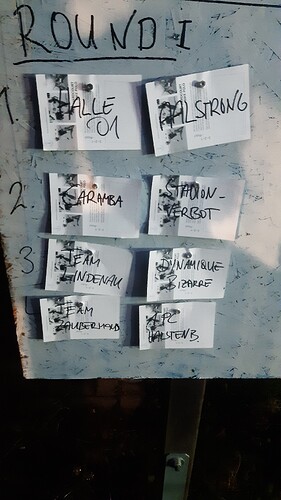 ROUND I
1 HALLE 01
AALSTRONG
2 KARAMBA
STADION-
VERBOT
3 TEAM
LINDENAU
DYNAMIQUE
BIZARRE
TEAM
ZAUBERWALD
1. FC
HALSTENB.